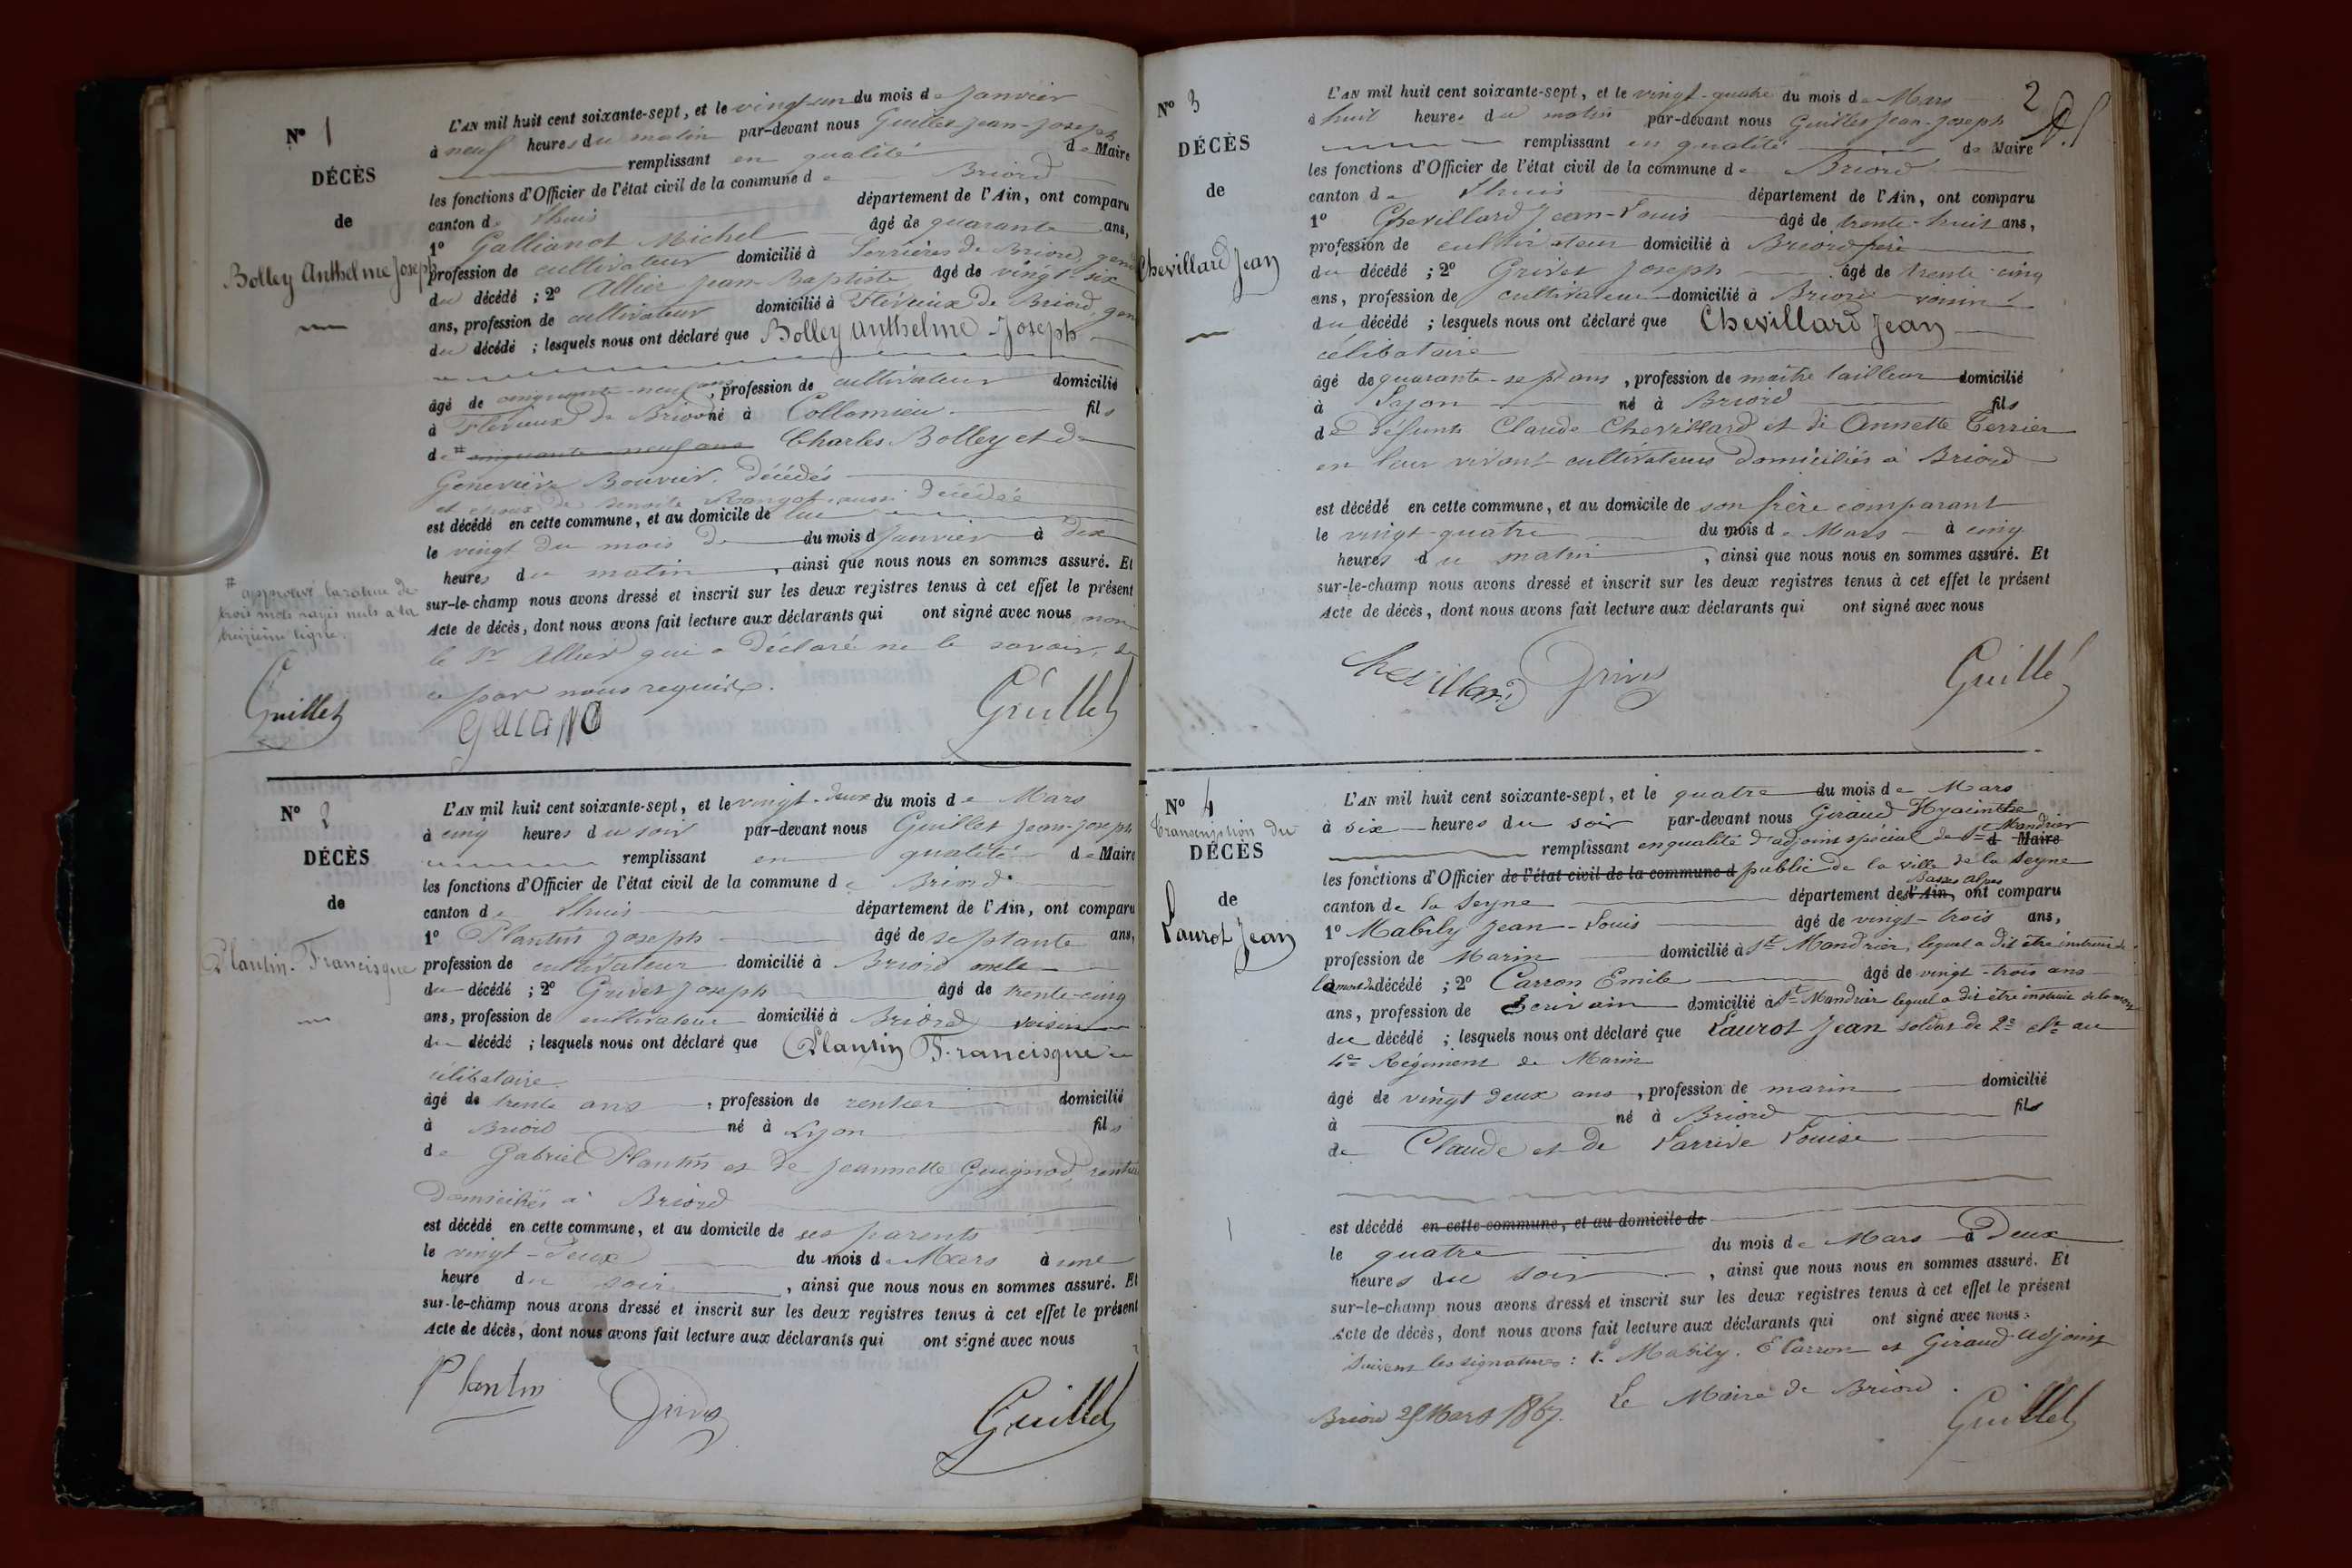 N° 1
DÉCÈS
de
Bolley Anthelme Joseph
L'AN mil huit cent soixante-sept, et le vingt-un du mois de Janvier
à neuf heures du matin par-devant nous Guillet Jean-Joseph
remplissant en qualité de Maire
les fonctions d'Officier de l'état civil de la commune de Briord
canton de Lhuis département de l'Ain, ont comparu
1° Gallianot Michel âgé de quarante ans,
profession de cultivateur domicilié à Serrières de Briord, gendre
du décédé ; 2° Allier Jean-Baptiste âgé de vingt-six
ans, profession de cultivateur domicilié à Flévieux de Briord,
du décédé ; lesquels nous ont déclaré que Bolley Anthelme Joseph
âgé de cinquante-neuf ans, profession de cultivateur domicilié
à Flévieux de Briord né à Collomieu fils
de # cinquante neuf ans Charles Bolley et de
Geneviève Bouvier, décédés
et époux de Benoite aussi décédée
est décédé en cette commune, et au domicile de lui
le vingt du mois de du mois d Janvier à dix
heures du matin, ainsi que nous nous en sommes assuré. Et
sur-le-champ nous avons dressé et inscrit sur les deux registres tenus à cet effet le présent
Acte de décès, dont nous avons fait lecture aux déclarants qui ont signé avec nous non
le Sr Allier qui a déclaré ne le savoir, de
ce par nous requis.
# approuvé la rature de
trois mots rayés nuls à la
treizième ligne.
Guillet
Guillet
N° 2
DÉCÈS
de
Plantin Francisque
L'AN mil huit cent soixante-sept, et le vingt-deux du mois de Mars
à cinq heures du soir par-devant nous Guillet Jean-Joseph
remplissant en qualité de Maire
les fonctions d'Officier de l'état civil de la commune de Briord
canton de Lhuis département de l'Ain, ont comparu
1° Plantin Joseph âgé de septante ans,
profession de cultivateur domicilié à Briord oncle
du décédé ; 2° Grivet Joseph âgé de trente-cinq
ans, profession de cultivateur domicilié à Briord voisin
du décédé ; lesquels nous ont déclaré que Plantin Francisque
célibataire
âgé de trente ans, profession de rentier domicilié
à Briord né à Lyon fils
de Gabriel Plantin et de Jeannette Guignod, rentiers
domiciliés à Briord
est décédé en cette commune, et au domicile de ses parents
le vingt-deux du mois de Mars à une
heure du soir, ainsi que nous nous en sommes assuré. Et
sur-le-champ nous avons dressé et inscrit sur les deux registres tenus à cet effet le présent
Acte de décès, dont nous avons fait lecture aux déclarants qui ont signé avec nous
Plantin Grivet Guillet
2
N° 3
DÉCÈS
de
Chevillard Jean
L'AN mil huit cent soixante-sept, et le vingt-quatre du mois de Mars
à huit heures du matin par-devant nous Guillet Jean-Joseph
remplissant en qualité de Maire
les fonctions d'Officier de l'état civil de la commune de Briord
canton de Lhuis département de l'Ain, ont comparu
1° Chevillard Jean-Louis âgé de trente-huit ans,
profession de cultivateur domicilié à Briord frère
du décédé ; 2° Grivet Joseph âgé de trente-cinq
ans, profession de cultivateur domicilié à Briord voisin
du décédé ; lesquels nous ont déclaré que Chevillard Jean
célibataire
âgé de quarante-sept ans, profession de maître tailleur domicilié
à né à Briord fils
de défunts Claude Chevillard et de Annette Terrier
en leur vivant cultivateurs domiciliés à Briord
est décédé en cette commune, et au domicile de son frère comparant
le vingt-quatre du mois de Mars à cinq
heures du matin, ainsi que nous nous en sommes assuré. Et
sur-le-champ nous avons dressé et inscrit sur les deux registres tenus à cet effet le présent
Acte de décès, dont nous avons fait lecture aux déclarants qui ont signé avec nous
Chevillard Grivet Guillet
N° 4
Transcription du
DÉCÈS
de
Laurot Jean
L'AN mil huit cent soixante-sept, et le quatre du mois de Mars
à six heures du soir par-devant nous Giraud Hyacinthe
remplissant en qualité d'adjoint spécial de St Mandrier d Maire
les fonctions d'Officier de l'état civil de la commune d public de la ville de la Seyne
canton de la Seyne département des l'Ain, Basses alpes ont comparu
1° Mabily Jean-Louis âgé de vingt-trois ans,
profession de Marin domicilié à St Mandrier, lequel a dit être instruit de
la mort du décédé ; 2° Carron Emile âgé de vingt-trois ans
ans, profession de Ecrivain domicilié à St Mandrier lequel a dit être instruit de la mort
du décédé ; lesquels nous ont déclaré que Laurot Jean soldat de 2e cl. au
4e Régiment de Marin
âgé de vingt deux ans, profession de marin domicilié
à né à Briord fils
de Claude et de Larrive Louise
est décédé en cette commune, et au domicile de
le quatre du mois de Mars à Deux
heures du soir, ainsi que nous nous en sommes assuré. Et
sur-le-champ nous avons dressé et inscrit sur les deux registres tenus à cet effet le présent
Acte de décès, dont nous avons fait lecture aux déclarants qui ont signé avec nous.
Suivent les signatures : L. Mabily. E Carron et Giraud adjoint
Briord 25 Mars 1867. Le Maire de Briord.
Guillet